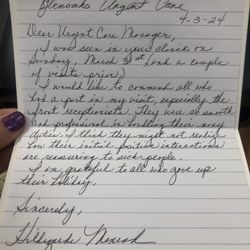 Glenoaks Urgent Care
4-3-24
Dear Urgent Care Manager,
I was seen in your clinic on
Sunday, March 31st (and a couple
of visits prior)
I would like to commend all who
had a part in my visit, especially the
front receptionists. They were so smooth
and professional in handling their many
duties. I think they might not realize
how their initial positive interactions
are reassuring to sick people.
I am grateful to all who gave up
their holiday.
Sincerely,